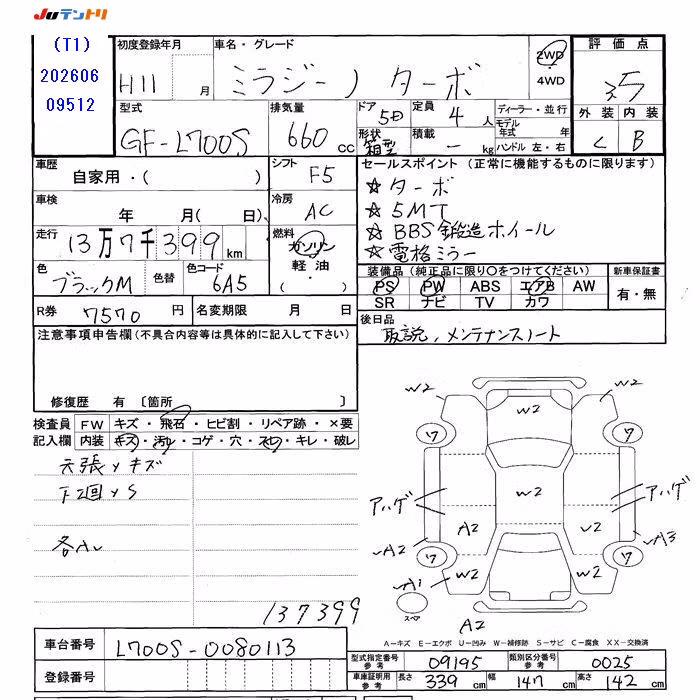 Juテントリ
(T1)
202606
09512
初度登録年月
H11 月
車名・グレード
ミラジーノ ターボ
2WD
4WD
評価点
3.5
外装 内装
C B
型式
GF-L700S
排気量
660 cc
ドア
5D
形状
箱型
定員
4 人
積載
- kg
ディーラー・並行
モデル年式 年
ハンドル 左・右
車歴
自家用・( )
シフト
F5
車検
年 月( 日)
冷房
AC
走行
13万7千399 km
燃料
ガソリン
軽油
・( )
色
ブラックM
色替
色コード
6A5
R券
7570 円
名変期限 月 日
セールスポイント (正常に機能するものに限ります)
☆ ターボ
☆ 5MT
☆ BBS鍛造ホイール
☆ 電格ミラー
装備品 (純正品に限り○をつけてください)
PS PW ABS エアB AW
SR ナビ TV カワ
新車保証書
有・無
後日品
取説, メンテナンスノート
注意事項申告欄 (不具合内容等は具体的に記入して下さい)
修復歴 有 〔箇所 〕
検査員記入欄
FW キズ・飛石・ヒビ割・リペア跡・×要
内装 キズ・汚レ・コゲ・穴・スレ・キレ・破レ
天張メキズ
137399
W2 W2
W2
ワ ワ
アハゲ アハゲ
W2
A2
A2 A3
ワ ワ
W2 W2
A1
スペア
A2
A-キズ E-エクボ U-凹み W-補修跡 S-サビ C-腐食 XX-交換済
車台番号
L700S-0080113
登録番号
型式指定番号 参考
09195
類別区分番号 参考
0025
車庫証明用 参考
長さ 339 cm 幅 147 cm 高さ 142 cm